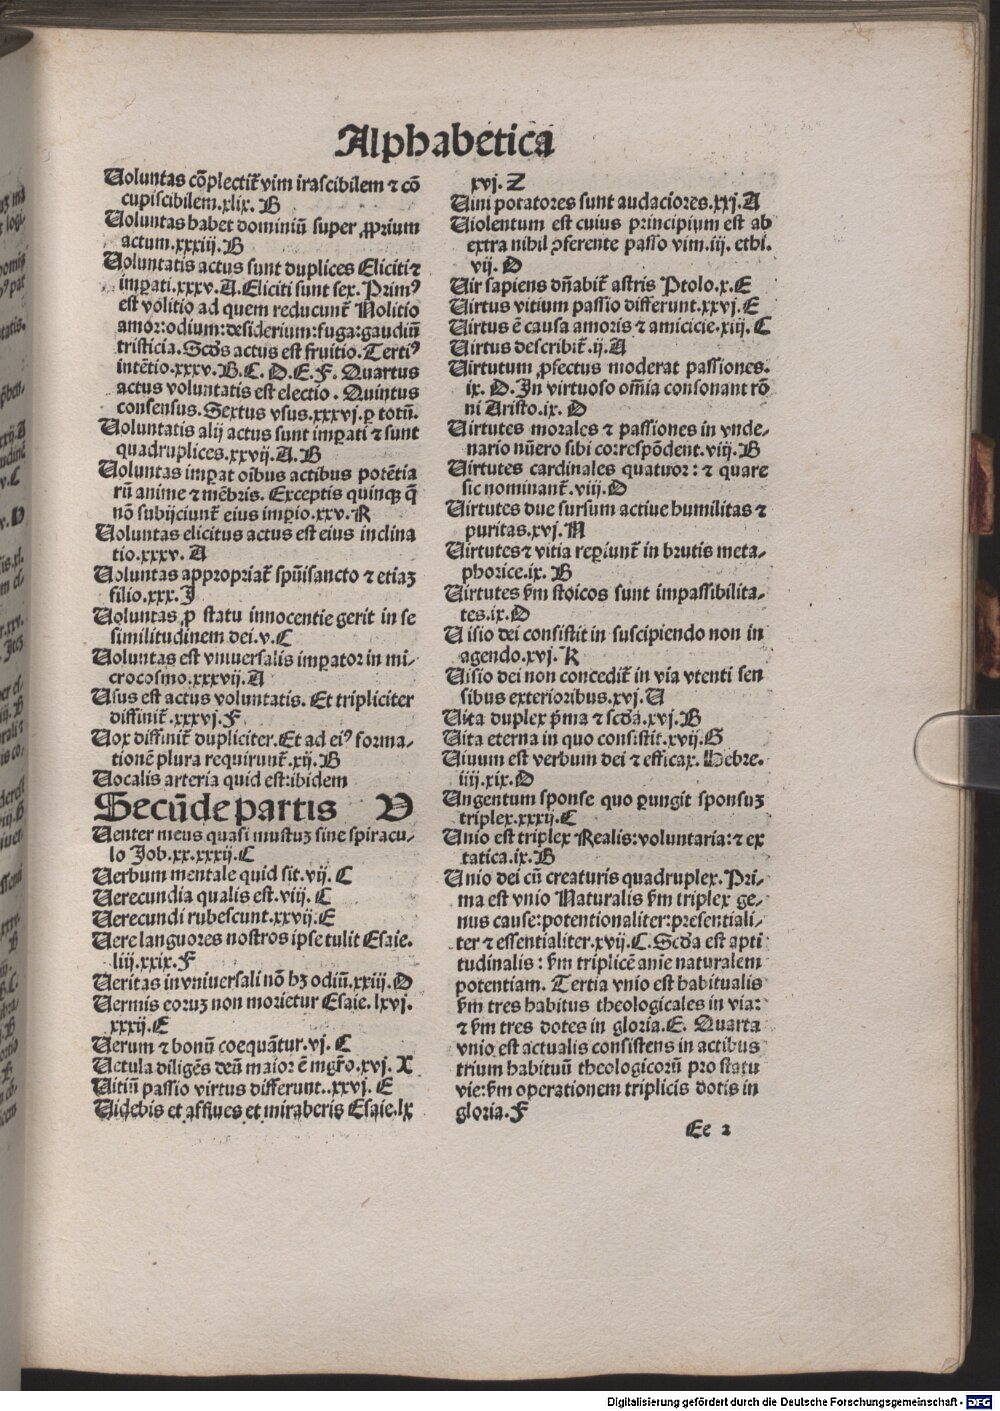 Alphabetica
Uoluntas cõplectit᷑ vim irascibilem ⁊ cõ
cupiscibilem.xlix. B
Uoluntas habet dominiũ super ꝓprium
actum.xxxiij.B
Uoluntatis actus sunt duplices Eliciti ⁊
imꝑati.xxxv.A.Eliciti sunt sex. Primꝰ
est volitio ad quem reducunt᷑ Nolitio
amor:odium:desiderium:fuga:gaudiũ
tristicia.Scḋs actus est fruitio.Tertiꝰ
intẽtio.xxxv.B.C.D.E.F. Quartus
actus voluntatis est electio. Quintus
consensus.Sextus vsus.xxxvj.ꝑ totũ.
Uoluntatis alij actus sunt imꝑati ⁊ sunt
quadruplices.xxvij.A.B
Uoluntas imꝑat oĩbus actibus potẽtia
rũ anime ⁊ mẽbris. Exceptis quinqꝫ q̃
nõ subijciunt᷑ eius imꝑio.xxv.R
Uoluntas elicitus actus est eius inclina
tio.xxxv. A
Uoluntas appropriat᷑ spũisancto ⁊ etiaꝫ
filio.xxx.J
Uoluntas ꝓ statu innocentie gerit in se
similitudinem dei.v.C
Uoluntas est vniuersalis imꝑator in mi-
crocosmo.xxxvij.A
Usus est actus voluntatis. Et tripliciter
diffinit᷑.xxxvj.F
Uox diffinit᷑ dupliciter.Et ad eiꝰ forma-
tionẽ plura requirunt᷑.xij.B
Uocalis arteria quid est:ibidem
Secũde partis V
Uenter meus quasi mustuꝫ sine spiracu-
lo Job.xx.xxxij.C
Uerbum mentale quid sit.vij. C
Uerecundia qualis est.viij. C
Uerecundi rubescunt.xxvij.E
Uere languores nostros ipse tulit Esaie.
liij.xxix.F
Ueritas in vniuersali nõ hꝫ odiũ.xxiij.D
Uermis eoruꝫ non morietur Esaie.lxvj.
xxxij.E
Uerum ⁊ bonũ coequãtur.vj. C
Uetula diligẽs deũ maior ẽ mgr̃o.xvj. X
Uitiũ passio virtus differunt..xxvj. E
Uidebis et afflues et miraberis Esaie.lx
xvj. Z
Uini potatores sunt audaciores.xxj.A
Uiolentum est cuius principium est ab
extra nihil ꝯferente passo vim.iij. ethi.
vij. D
Uir sapiens dñabit᷑ astris Ptolo.x.E
Uirtus vitium passio differunt.xxvj.E
Uirtus ẽ causa amoris ⁊ amicicie.xiij. C
Uirtus describit᷑.ij.A
Uirtutum ꝓfectus moderat passiones.
ix. D.In virtuoso om̃ia consonant rõ
ni Aristo.ix. D
Uirtutes morales ⁊ passiones in vnde-
nario nũero sibi correspõdent.viij.B
Uirtutes cardinales quatuor: ⁊ quare
sic nominant᷑.viij.D
Uirtutes due sursum actiue humilitas ⁊
puritas.xvj.N
Uirtutes ⁊ vitia reꝑiunt᷑ in brutis meta-
phorice.ix. B
Uirtutes ẜm stoicos sunt impassibilita-
tes.ix.D
Uisio dei consistit in suscipiendo non in
agendo.xvj. K
Uisio dei non concedit᷑ in via vtenti sen
sibus exterioribus.xvj.U
Uita duplex p̃ma ⁊ scḋa.xvj.B
Uita eterna in quo consistit.xvij.G
Uiuum est verbum dei ⁊ efficax. Hebre.
iiij.xix.D
Ungentum sponse quo ꝑungit sponsuꝫ
triplex.xxxij.C
Unio est triplex Realis:voluntaria:⁊ ex
tatica.ix.B
Unio dei cũ creaturis quadruplex.Pri-
ma est vnio Naturalis ẜm triplex ge-
nus cause:potentionaliter:presentiali-
ter ⁊ essentialiter.xvij.C.Scḋa est apti
tudinalis: ẜm triplicẽ anĩe naturalem
potentiam. Tertia vnio est habitualis
ẜm tres habitus theologicales in via:
⁊ ẜm tres dotes in gloria.E. Quarta
vnio est actualis consistens in actibus
trium habituũ theologicorũ pro statu
vie:ẜm operationem triplicis dotis in
gloria.F
Ee 2
Digitalisierung gefördert durch die Deutsche Forschungsgemeinschaft - DFG